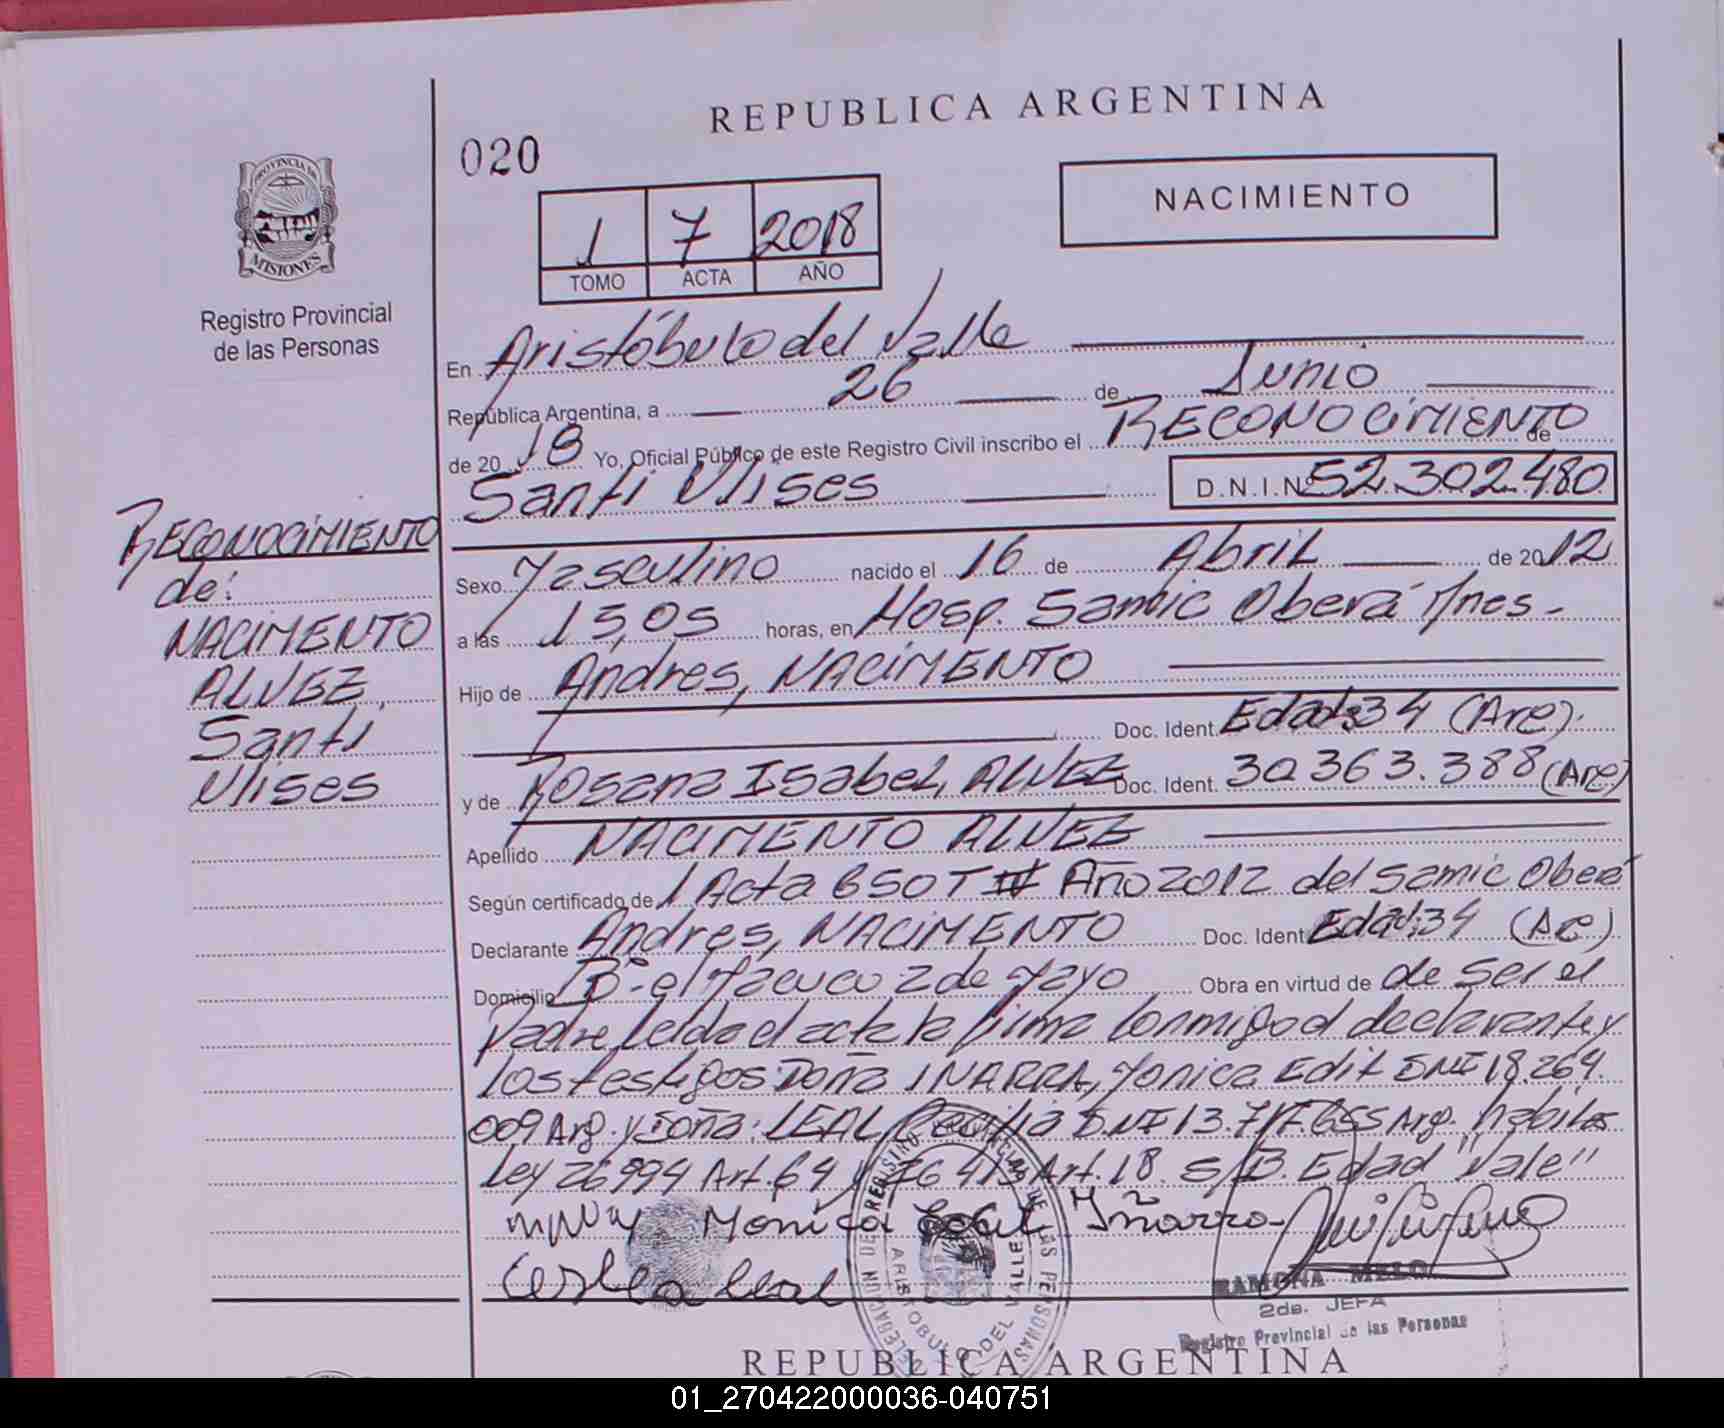 REPUBLICA ARGENTINA
020
NACIMIENTO
1 7 2018
TOMO ACTA AÑO
PROVINCIA DE
MISIONES
Registro Provincial
de las Personas
En Aristóbulo del Valle
República Argentina, a 26 de Junio
de 20 18 Yo, Oficial Público de este Registro Civil inscribo el RECONOCIMIENTO de
Santi Ulises D.N.I.Nº 52.302.480
RECONOCIMIENTO
de:
NACIMENTO
ALVEZ,
Santi
Ulises
Sexo Masculino nacido el 16 de Abril de 20 12
a las 15,05 horas, en Hosp. Samic Oberá Mnes-
Hijo de Andres, NACIMENTO
Doc. Ident. Edad:34 (Arg).
y de Rosana Isabel, ALVEZ Doc. Ident. 30.363.388 (Arg)
Apellido NACIMENTO ALVEZ
Según certificado de 1 Acta 650 T IV Año 2012 del Samic Oberá
Declarante Andres, NACIMENTO Doc. Ident Edad:34 (Arg)
Domicilio Bº-el 2 de Mayo Obra en virtud de de ser el
Padre leida el acta la firma conmigo el declarante y
los testigos Doña INARRA, Monica Edit DNI 18.264.
009 Arg. y Doña: LEAL Cecilia DNI 13. Arg. habiles
Ley 26994 Art. 64 y 26 413 Art. 18. S/B. Edad "Vale"
Mónica Edit Iñarra
Leal
RAMONA MELO
2da. JEFA
Registro Provincial de las Personas
REPUBLICA ARGENTINA
01_270422000036-040751